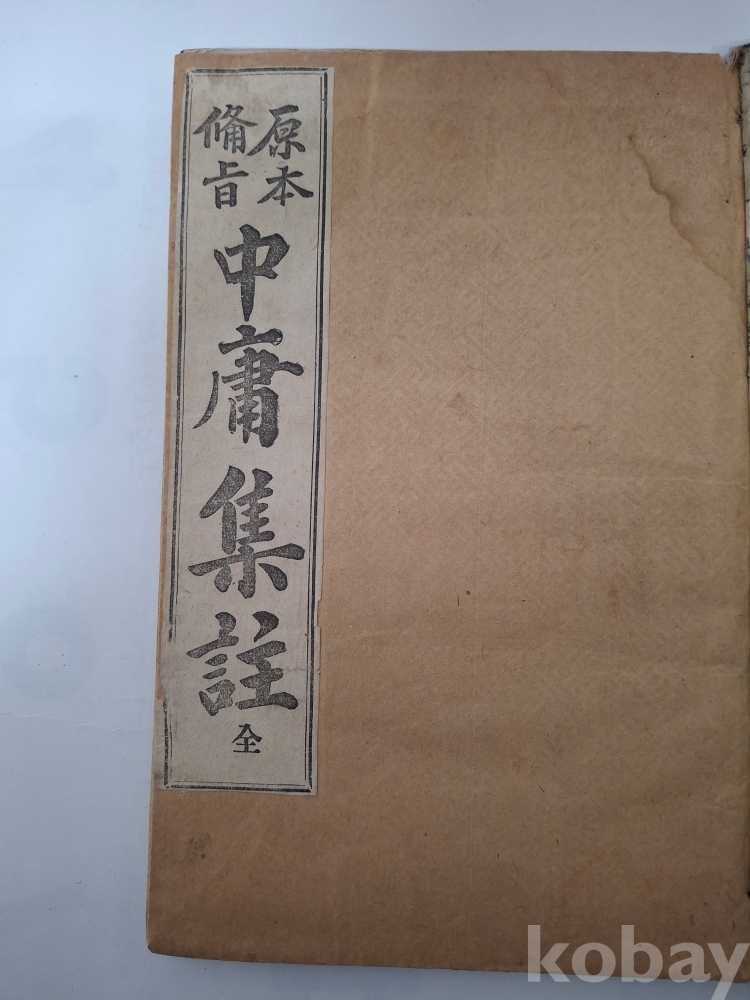 原本
備旨
中庸集註
全
kobay